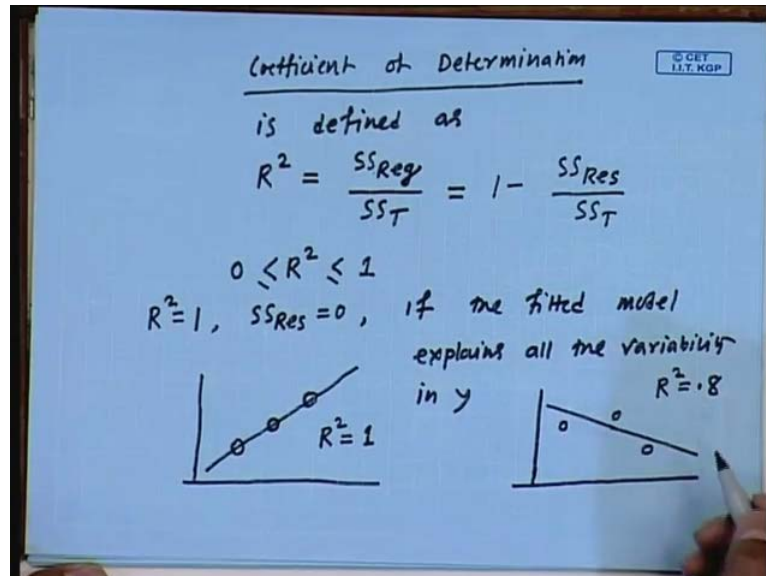 Coefficient of Determination
© CET
I.I.T. KGP
is defined as
R² = SS_Reg / SS_T = 1 - SS_Res / SS_T
0 ≤ R² ≤ 1
R² = 1, SS_Res = 0, if the fitted model
explains all the variability
in y
R² = 1
R² = .8